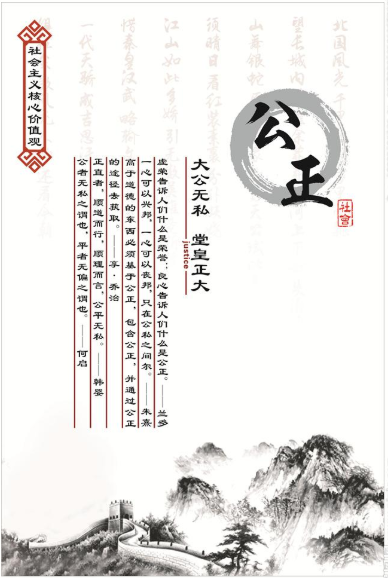 社会主义核心价值观
公正
社會
大公无私 堂皇正大
justice
虚荣告诉人们什么是荣誉；良心告诉人们什么是公正。——兰多
一心可以兴邦，一心可以丧邦，只在公私之间尔。——朱熹
高于道德的东西必须基于公正，包含公正，并通过公正
的途径去获取。——享·乔治
正直者，顺道而行，顺理而言，公平无私。——韩婴
公者无私之谓也，平者无偏之谓也。——何启
北国风光千
望长城内
山舞银蛇
须晴日看红装素
江山如此多娇引
惜秦皇汉武略输
一代天骄成吉思